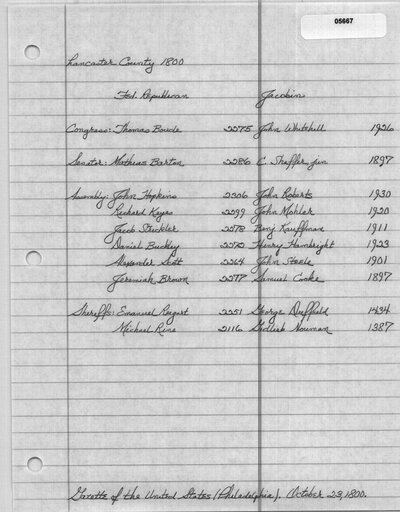 05667
Lancaster County 1800
Fed. Republican Jacobin
Congress: Thomas Boude 2275 John Whitehill 1926
Senator: Mathias Barton 2286 C. Shaffer jun 1897
Assembly: John Hopkins 2306 John Roberts 1930
Richard Keyes 2299 John Mohler 1920
Jacob Strickler 2278 Benj Kauffman 1911
Daniel Buckley 2272 Henry Hambright 1923
Alexander Scott 2264 John Steele 1901
Jeremiah Brown 2277 Samuel Cooke 1897
Sheriffs: Emanuel Reigart 2251 George Duffield 1434
Michael Rine 2116 Gotlieb Nouman 1387
Gazette of the United States (Philadelphia). October 23, 1800.